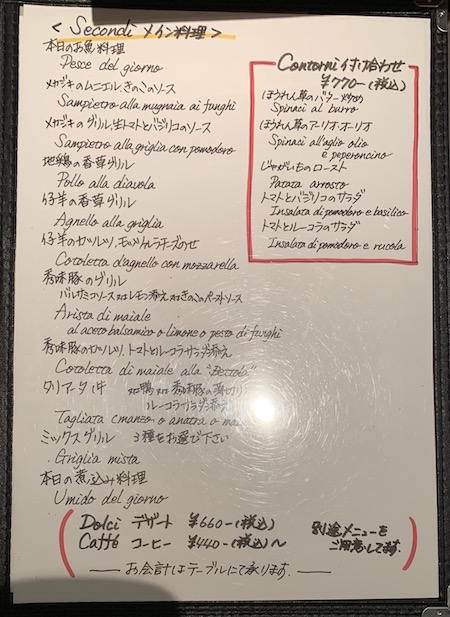 < Secondi メイン料理 >
本日のお魚料理
Pesce del giorno
メカジキのムニエル、きのこのソース
Sampietro alla mugnaia ai funghi
メカジキのグリル、生トマトとバジリコのソース
Sampietro alla griglia con pomodoro
地鶏の香草グリル
Pollo alla diavola
仔羊の香草グリル
Agnello alla griglia
仔羊のカツレツ、モッツァレラチーズのせ
Cotoletta d'agnello con mozzarella
秀味豚のグリル
バルサミコソース or レモン添え or きのこのペーストソース
Arista di maiale
al aceto balsamico o limone o pesto di funghi
秀味豚のカツレツ、トマトとルーコラサラダ添え
Cotoletta di maiale alla "Bettola"
タリアータ 牛 or 鴨 or 秀味豚の薄切り
ルーコラサラダ添え
Tagliata (manzo o anatra o
ミックスグリル 3種をお選び下さい
Griglia mista
本日の煮込み料理
Umido del giorno
Contorni 付け合わせ
¥770-(税込)
ほうれん草のバター炒め
Spinaci al burro
ほうれん草のアーリオ・オーリオ
Spinaci all'aglio olio
e peperoncino
じゃがいものロースト
Patata arrosto
トマトとバジリコのサラダ
Insalata di pomodoro e basilico
トマトとルーコラのサラダ
Insalata di pomodoro e rucola
Dolci デザート ¥660-(税込)
Caffé コーヒー ¥440-(税込)〜
別途メニューを
ご用意してます.
— お会計はテーブルにて承ります. —